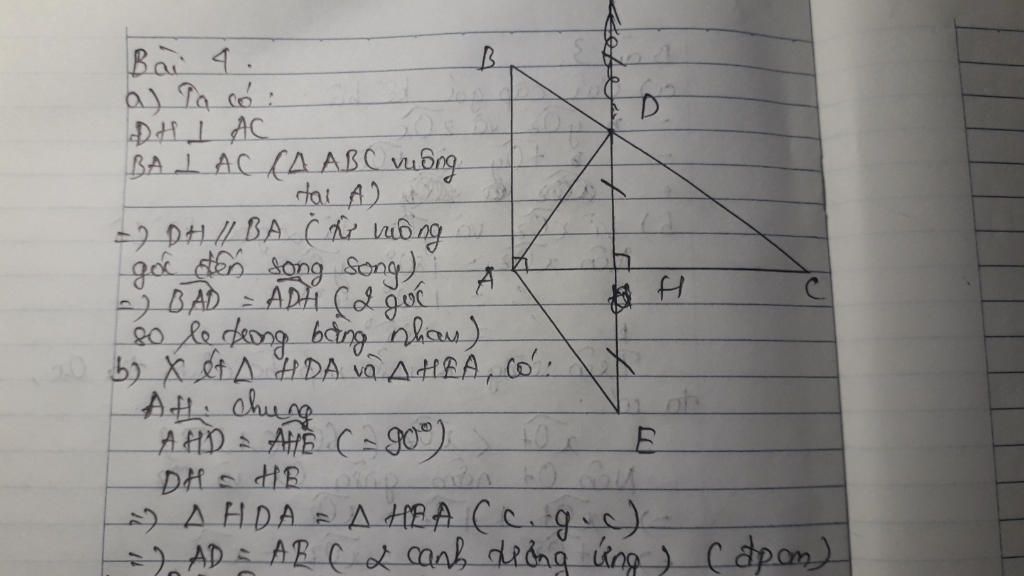 Bài 4.
a) Ta có:
DH ⊥ AC
BA ⊥ AC (Δ ABC vuông
tại A)
=> DH // BA (từ vuông
góc đến song song)
=> BAD = ADH (2 góc
so le trong bằng nhau)
b) Xét Δ HDA và Δ HEA, có:
AH: chung
AHD = AHE (= 90°)
DH = HE
=> Δ HDA = Δ HEA (c.g.c)
=> AD = AE (2 cạnh tương ứng) (đpcm)
B
D
A
H
C
E